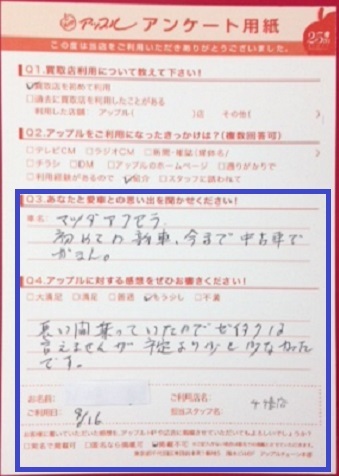 アップル アンケート用紙
25th
この度は当店をご利用いただきありがとうございました。
Q1.買取店利用について教えて下さい!
☑買取店を初めて利用
□過去に買取店を利用したことがある
利用した店舗: アップル( )店 その他( )
Q2.アップルをご利用になったきっかけは?(複数回答可)
□テレビCM □ラジオCM □新聞・雑誌(媒体名/ )
□チラシ □DM □アップルのホームページ □通りがかりで
□利用経験があるので ☑紹介 □スタッフに誘われて
Q3.あなたと愛車との思い出を聞かせください!
車名: マツダアクセラ
初めての新車、今まで中古車で
Q4.アップルに対する感想をぜひお書きください!
□大満足 □満足 □普通 ☑もう少し □不満
長い間乗っていたのでゼイタクは
言えませんが予定より少し少なかった
です。
お名前:
ご利用店名:
ご利用日: 8/16
担当スタッフ名:
お客様に書いていただいた感想を、アップルHPや広告に掲載させていただいてもよろしいでしょうか?
□実名で掲載可 □匿名なら掲載可 ☑掲載不可